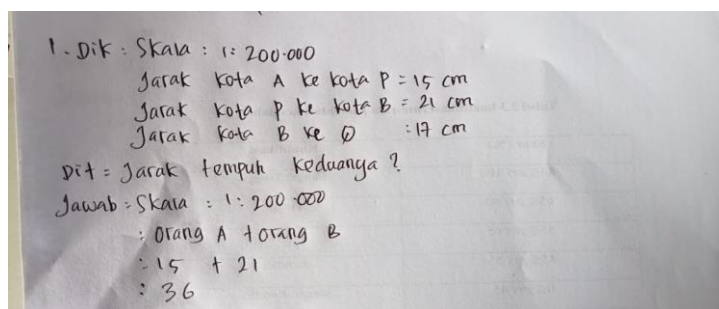 1. Dik : Skala : 1 : 200.000
Jarak kota A ke kota P = 15 cm
Jarak kota P ke kota B = 21 cm
Jarak kota B ke Q : 17 cm
Dit = Jarak tempuh keduanya ?
Jawab : Skala : 1 : 200.000
: Orang A + orang B
: 15 + 21
: 36